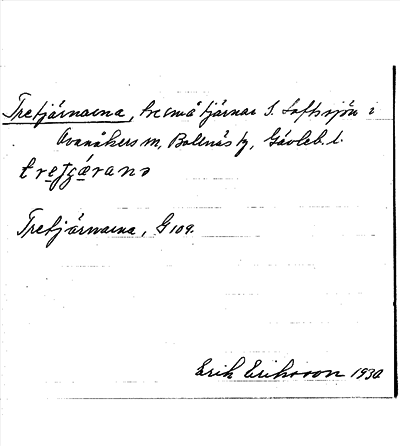 Tretjärnarna, tre små tjärnar S. Loftssjön i
Ovanåkers sn, Bollnäs tg, Gävleb. l.
tretjärana
Tretjärnarna, G 109.
Erik Eriksson 1930